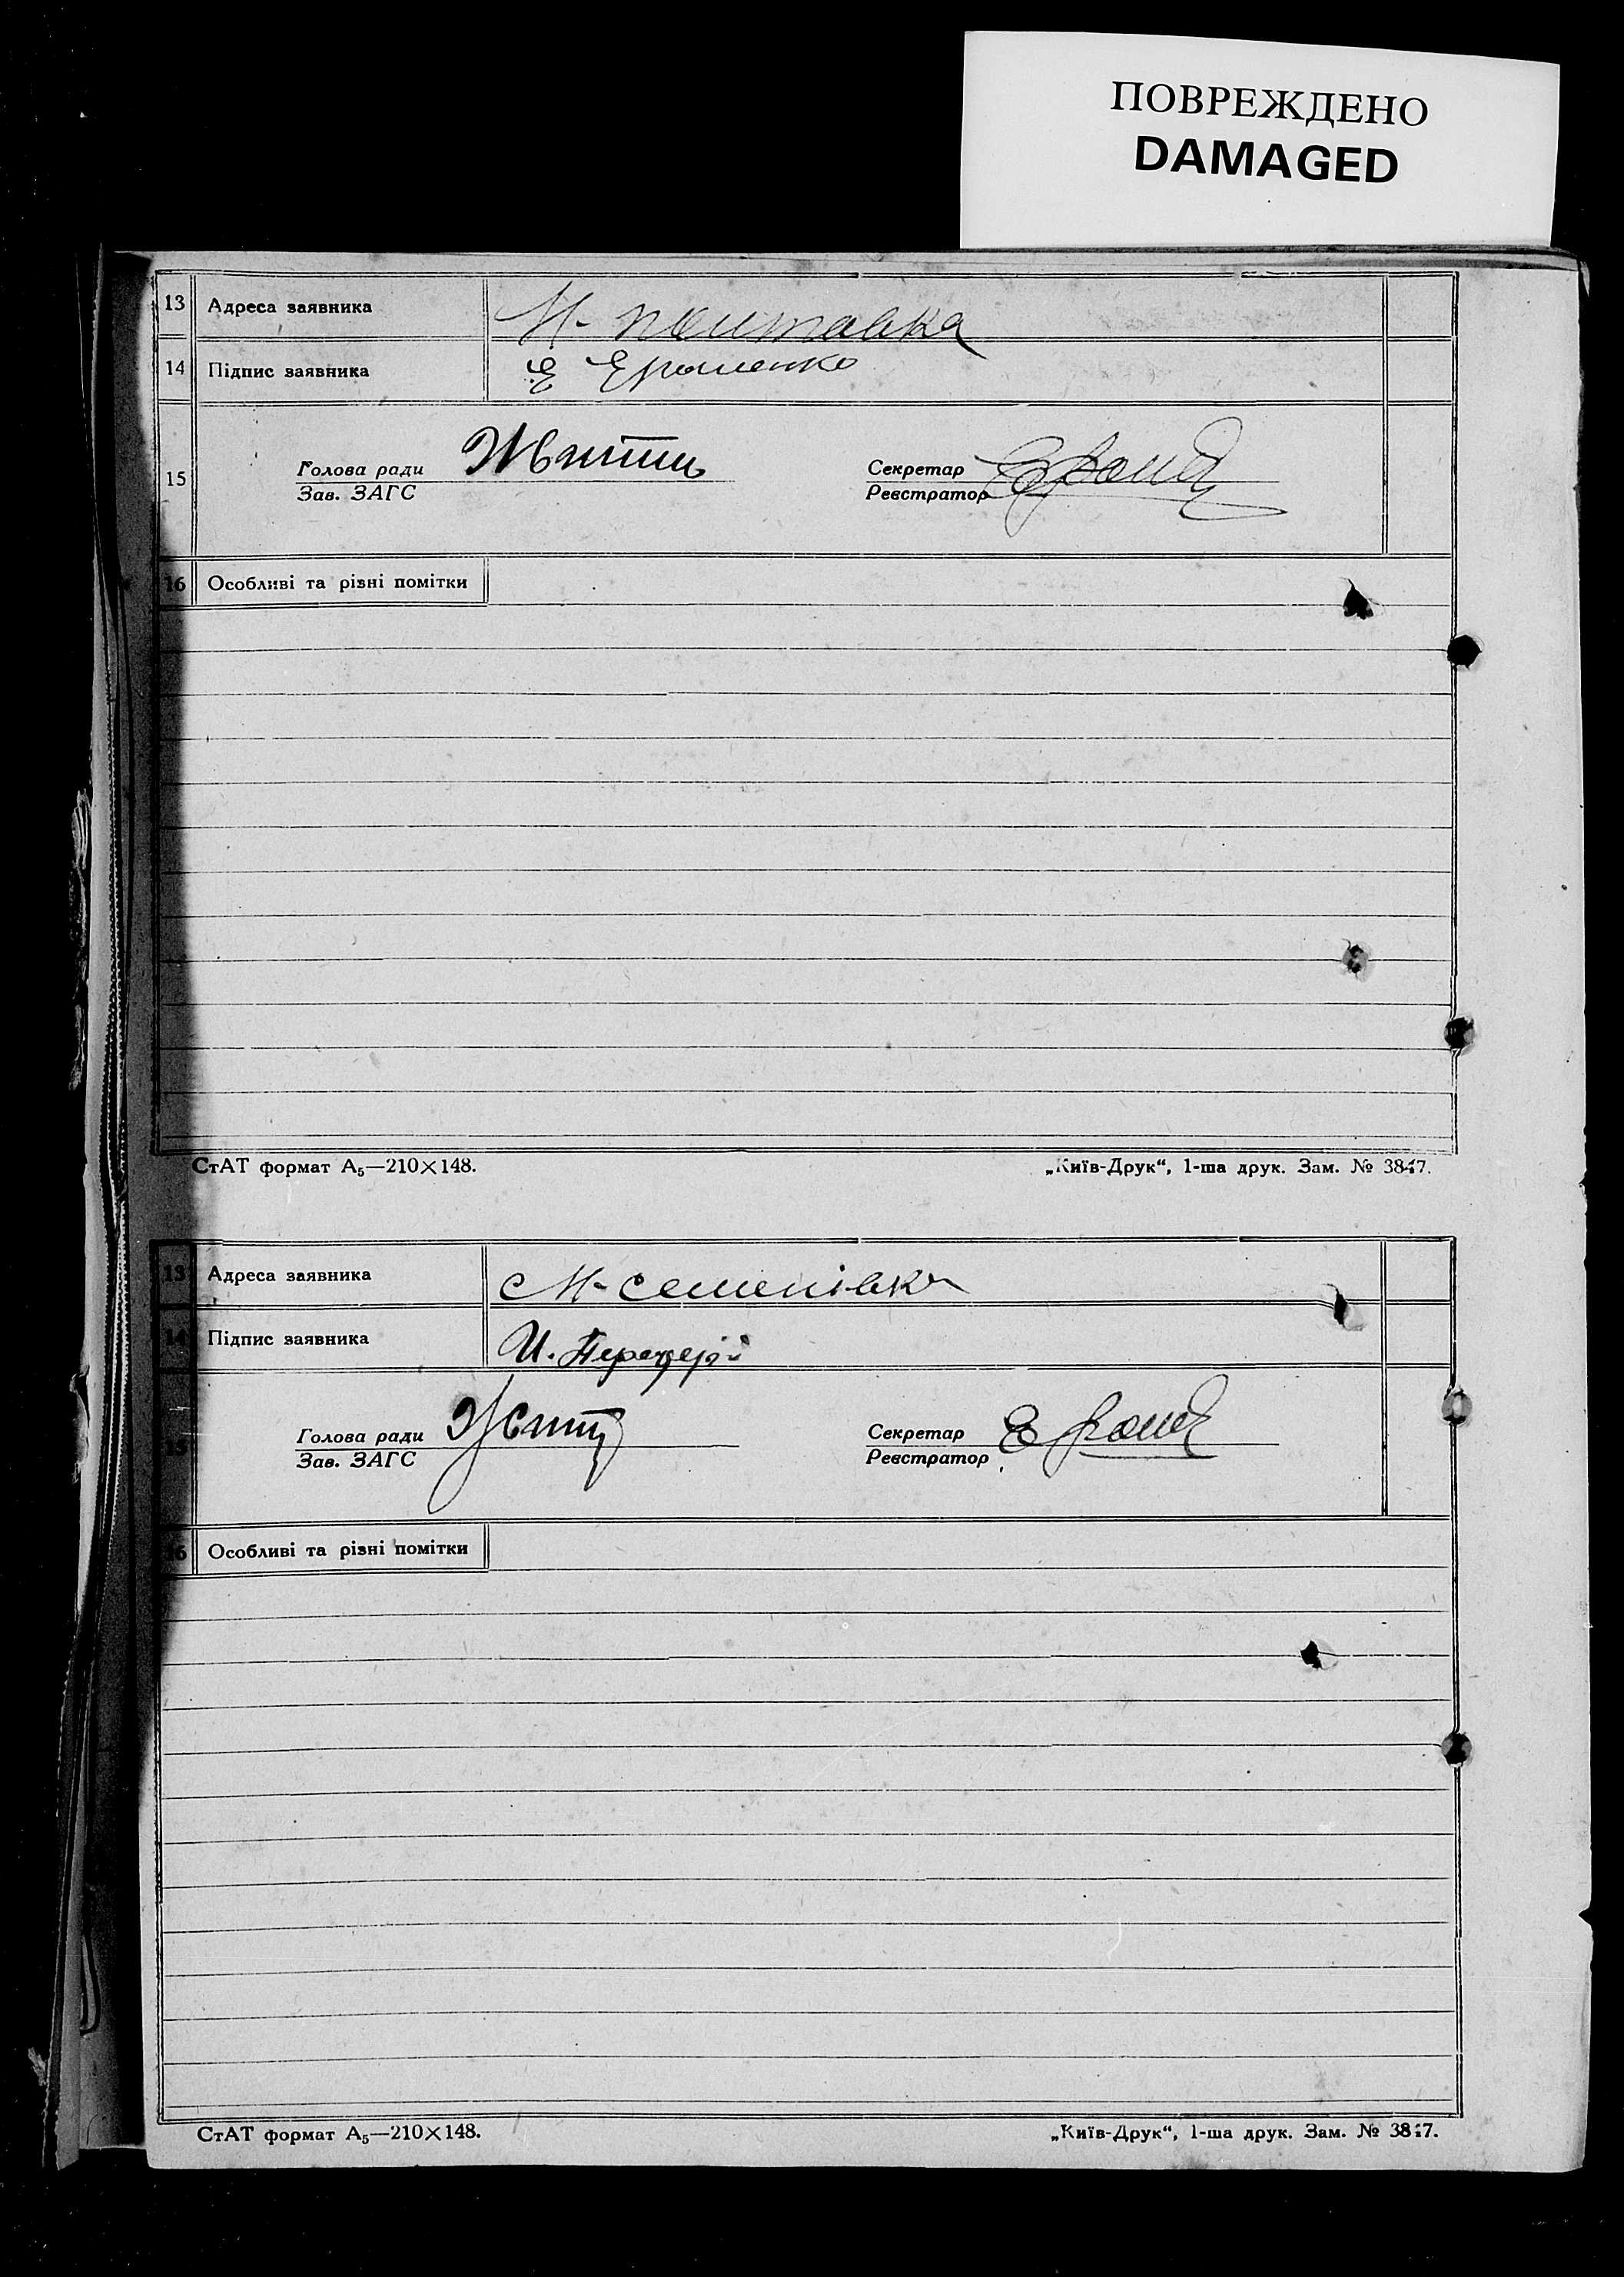 ПОВРЕЖДЕНО
DAMAGED
13 Адреса заявника
14 Підпис заявника Е Ерошенко
15 Голова ради Секретар
Зав. ЗАГС Реєстратор
16 Особливі та різні помітки
СтАТ формат А₅—210×148. „Київ-Друк“, 1-ша друк. Зам. №
13 Адреса заявника с М-семенівка
14 Підпис заявника И. Передерій
15 Голова ради Секретар
Зав. ЗАГС Реєстратор
16 Особливі та різні помітки
СтАТ формат А₅—210×148. „Київ-Друк“, 1-ша друк. Зам. №